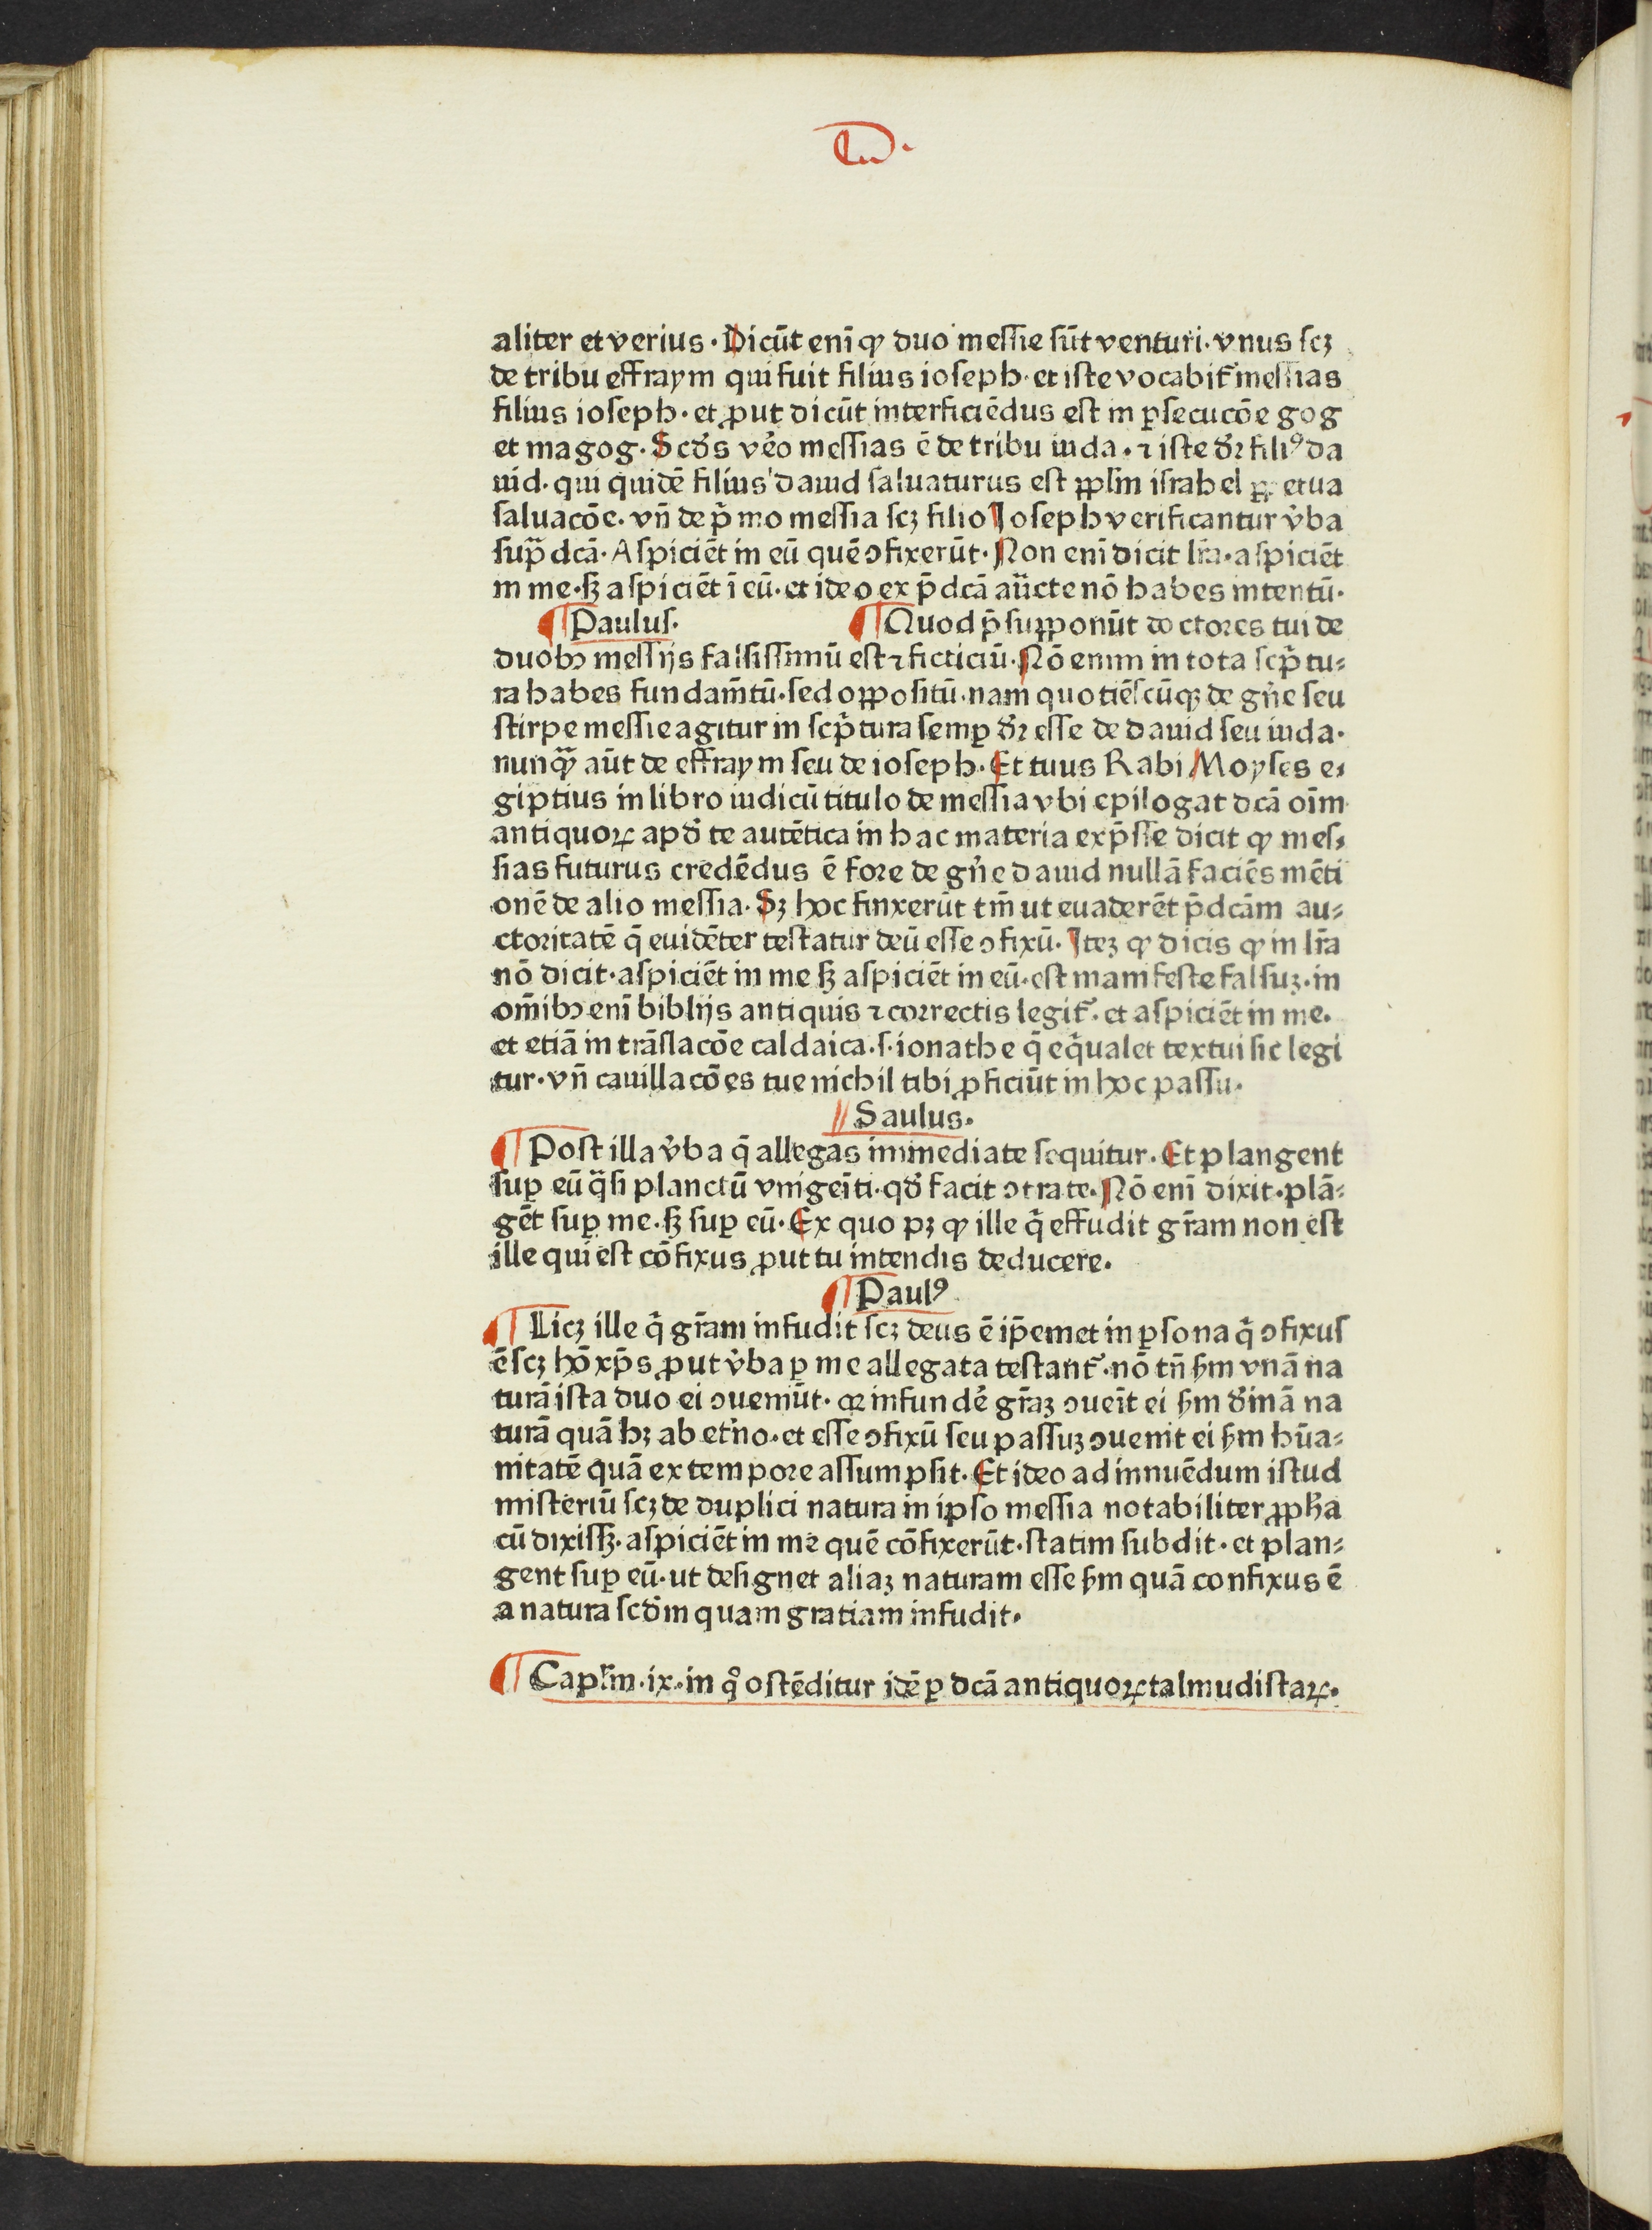 aliter et verius· Dicūt enī ꝙ duo messie sūt venturi· vnus scꝫ
de tribu effraym qui fuit filius ioseph· et iste vocabit᷑ messias
filius ioseph· et ꝓut dicūt interficiēdus est in ꝑsecucōe gog
et magog· Scd̓s v̓o messias ē de tribu iuda· ⁊ iste dr̄ filiꝰ da
uid· qui quidē filius dauid saluaturus est ppl̄m israhel ꝑpetua
saluacōe· vn̄ de p̄mo messia scꝫ filio Ioseph verificantur v̓ba
supᷓdcā· Aspiciēt in eū quē ꝯfixerūt· Non enī dicit lr̄a· aspiciēt
in me· sꝫ aspiciēt ī eū· et ideo ex p̄dcā auc̄te nō habes intentū·
¶ Paulus· ¶ Quod p̄supponūt doctores tui de
duobꝫ messijs falsissimū est ⁊ ficticiū· Nō enim in tota scp̄tu⸗
ra habes fundam̄tū· sed oppositū· nam quotiēscūqꝫ de gn̄e seu
stirpe messie agitur in scp̄tura semꝑ dr̄ esse de dauid seu iuda·
nunqᷓꝫ aūt de effraym seu de ioseph· Et tuus Rabi Moyses e⸗
giptius in libro iudicū titulo de messia vbi epilogat dcā oīm
antiquoꝝ apd̓ te autētica in hac materia exp̄sse dicit ꝙ mes⸗
sias futurus credēdus ē fore de gn̄e dauid nullā faciēs mēti
onē de alio messia· Sꝫ hoc finxerūt tm̄ ut euaderēt p̄dcām au⸗
ctoritatē q̄ euidēter testatur deū esse ꝯfixū· Iteꝫ ꝙ dicis ꝙ in lr̄a
nō dicit· aspiciēt in me sꝫ aspiciēt in eū· est manifeste falsuꝫ· in
om̄ibꝫ enī biblijs antiquis ⁊ correctis legit᷑· et aspiciēt in me·
et etiā in trāslacōe caldaica· s· ionathe q̄ eq̄ualet textui sic legi
tur· vn̄ cauillacōes tue nichil tibi ꝓficiūt in hoc passu·
Saulus·
¶ Post illa v̓ba q̄ allegas immediate sequitur· Et plangent
suꝑ eū qᷓsi planctū vnigeīti· qd̓ facit ꝯtra te· Nō enī dixit· plā⸗
gēt suꝑ me· sꝫ suꝑ eū· Ex quo pꝫ ꝙ ille q̇ effudit gr̄am non est
ille qui est cōfixus ꝓut tu intendis deducere·
¶ Paulꝰ
¶ Licꝫ ille q̇ gr̄am infudit scꝫ deus ē ip̄emet in ꝑsona q̇ ꝯfixus
ē scꝫ hō xp̄s ꝓut v̓ba ꝑ me allegata testant᷑· nō tn̄ ẜm vnā na
turā ista duo ei ꝯueniūt· qꝛ infundē gr̄aꝫ ꝯueīt ei ẜm diīnā na
turā quā hꝫ ab et̓no· et esse ꝯfixū seu passuꝫ ꝯuenit ei ẜm hūa⸗
nitatē quā ex tempore assumpsit· Et ideo ad innuēdum istud
misteriū scꝫ de duplici natura in ipso messia notabiliter ꝓpha
cū dixissꝫ· aspiciēt in me quē cōfixerūt· statim subdit· et plan⸗
gent suꝑ eū· ut designet aliaꝫ naturam esse ẜm quā confixus ē
a natura scd̓m quam gratiam infudit·
¶ Capl̄m· ix· in qͦ ostēditur idē ꝑ dcā antiquoꝝ talmudistaꝝ·